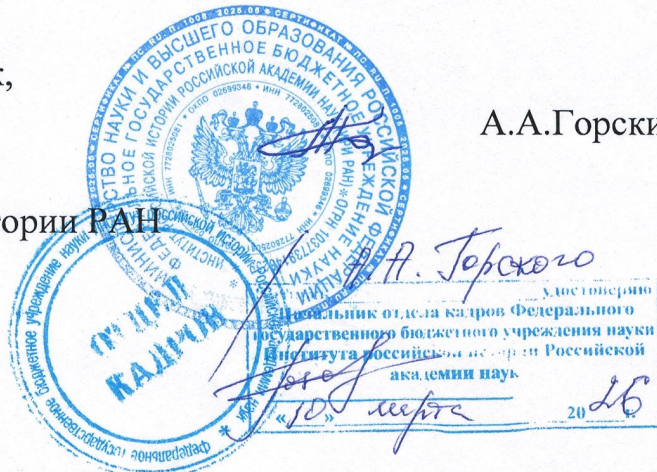 к,
А.А.Горски
тории РАН
МИНИСТЕРСТВО НАУКИ И ВЫСШЕГО ОБРАЗОВАНИЯ РОССИЙСКОЙ ФЕДЕРАЦИИ
ФЕДЕРАЛЬНОЕ ГОСУДАРСТВЕННОЕ БЮДЖЕТНОЕ УЧРЕЖДЕНИЕ НАУКИ
ИНСТИТУТ РОССИЙСКОЙ ИСТОРИИ РОССИЙСКОЙ АКАДЕМИИ НАУК
ОКПО 02699346 * ИНН
Федеральное государственное бюджетное учреждение науки
ОТДЕЛ
КАДРОВ
А.А. Горского
удостоверяю
Начальник отдела кадров Федерального
государственного бюджетного учреждения науки
Института российской истории Российской
академии наук
«10» марта 2026